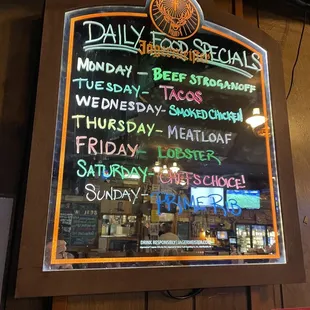 DAILY FOOD SPECIALS
MONDAY - BEEF STROGANOFF
TUESDAY - TACOS
WEDNESDAY - SMOKED CHICKEN!
THURSDAY - MEATLOAF
FRIDAY - LOBSTER
SATURDAY - CHEFS CHOICE!
SUNDAY - PRIME RIB
DRINK RESPONSIBLY.